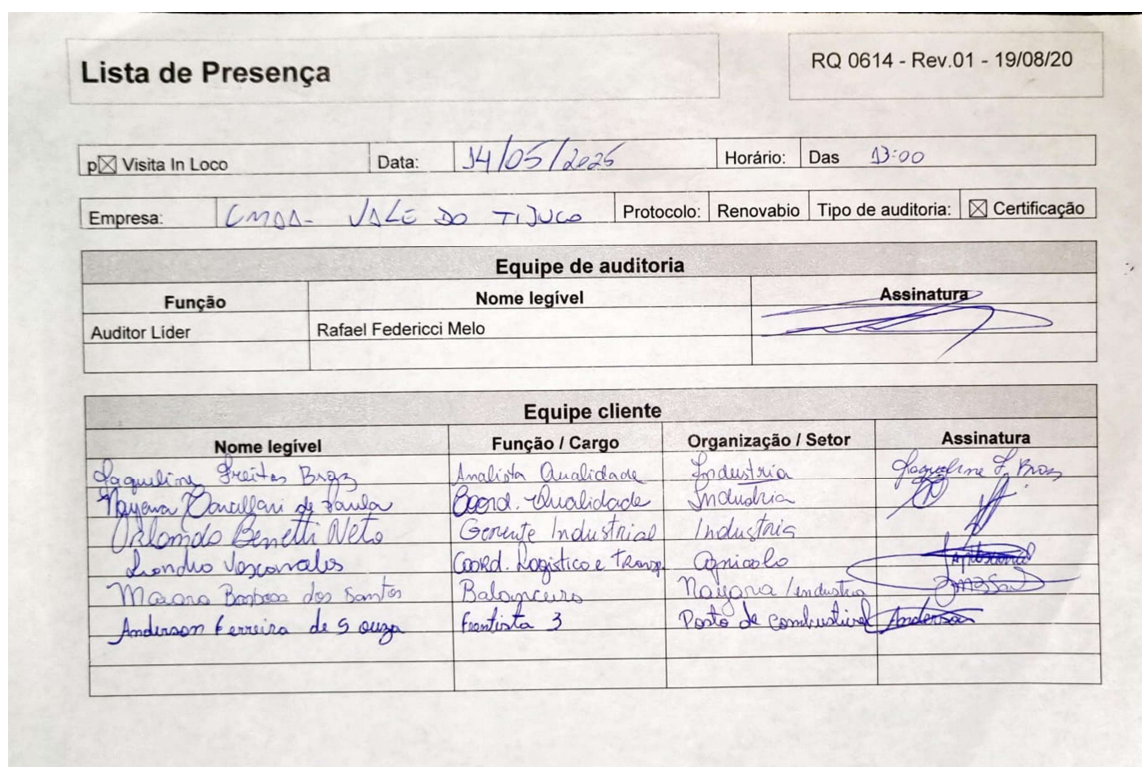 Lista de Presença
RQ 0614 - Rev.01 - 19/08/20
p☒ Visita In Loco Data: 14/05/2025 Horário: Das 13:00
Empresa: CMAA- VALE DO TIJUCO Protocolo: Renovabio Tipo de auditoria: ☒ Certificação
Equipe de auditoria
Função Nome legível Assinatura
Auditor Líder Rafael Federicci Melo
Equipe cliente
Nome legível Função / Cargo Organização / Setor Assinatura
Jaqueline Freitas Braz Analista Qualidade Industria Jaqueline F. Braz
de Paula Coord. Qualidade Industria
Orlando Benetti Neto Gerente Industrial Industria
Leandro Vasconcelos Coord. Logistica e Transp. Agricola
Barbosa dos Santos Balanceiro / industria
Anderson Ferreira de Souza Frentista 3 Posto de combustivel Anderson